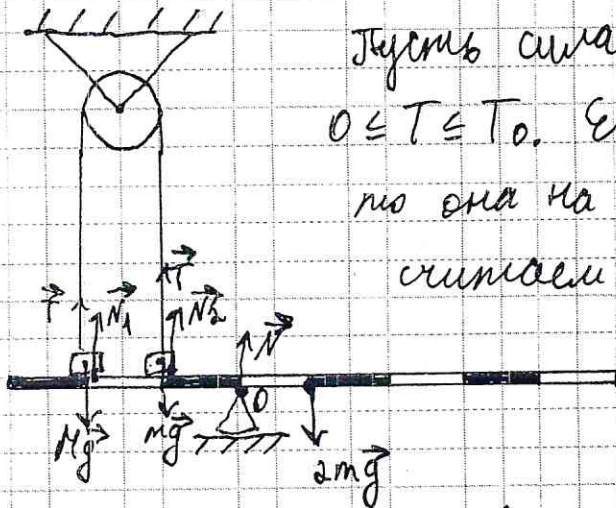 Пусть сила
0 ≤ T ≤ T₀. Е
то она на
считаем
T N₁ T N₂ N
O
Mg mg
2mg